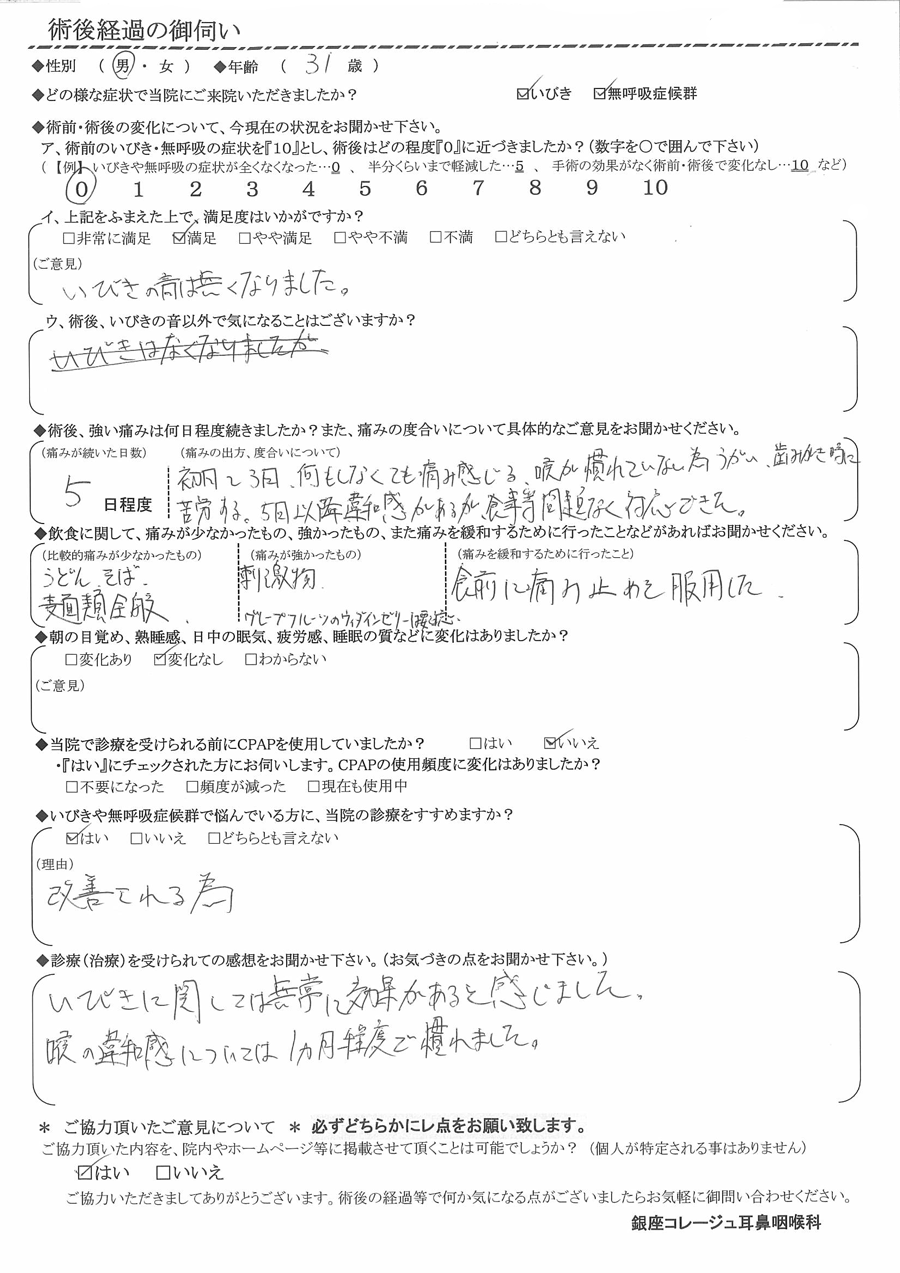 術後経過の御伺い
◆性別 (男・女) ◆年齢 ( 31 歳)
◆どの様な症状で当院にご来院いただきましたか? ☑いびき ☑無呼吸症候群
◆術前・術後の変化について、今現在の状況をお聞かせ下さい。
ア、術前のいびき・無呼吸の症状を『10』とし、術後はどの程度『0』に近づきましたか?(数字を〇で囲んで下さい)
(【例】いびきや無呼吸の症状が全くなくなった…0 、 半分くらいまで軽減した…5 、 手術の効果がなく術前・術後で変化なし…10 など)
0 1 2 3 4 5 6 7 8 9 10
イ、上記をふまえた上で、満足度はいかがですか?
□非常に満足 ☑満足 □やや満足 □やや不満 □不満 □どちらとも言えない
(ご意見)
いびきの音は無くなりました。
ウ、術後、いびきの音以外で気になることはございますか?
いびきはなくなりましたが
◆術後、強い痛みは何日程度続きましたか?また、痛みの度合いについて具体的なご意見をお聞かせください。
(痛みが続いた日数) (痛みの出方、度合いについて)
初日〜3日、何もしなくても痛み感じる、喉が慣れていない為うがい、歯みがき時に
5 日程度 苦労する。5日以降違和感があるが食事等問題なく対応できた。
◆飲食に関して、痛みが少なかったもの、強かったもの、また痛みを緩和するために行ったことなどがあればお聞かせください。
(比較的痛みが少なかったもの) (痛みが強かったもの) (痛みを緩和するために行ったこと)
うどん、そば、 刺激物 食前に痛み止めを服用した。
麺類全般、 グレープフルーツのウィダインゼリーは
◆朝の目覚め、熟睡感、日中の眠気、疲労感、睡眠の質などに変化はありましたか?
□変化あり ☑変化なし □わからない
(ご意見)
◆当院で診療を受けられる前にCPAPを使用していましたか? □はい ☑いいえ
・『はい』にチェックされた方にお伺いします。CPAPの使用頻度に変化はありましたか?
□不要になった □頻度が減った □現在も使用中
◆いびきや無呼吸症候群で悩んでいる方に、当院の診療をすすめますか?
☑はい □いいえ □どちらとも言えない
(理由)
改善される為
◆診療(治療)を受けられての感想をお聞かせ下さい。(お気づきの点をお聞かせ下さい。)
いびきに関しては非常に効果があると感じました。
喉の違和感については1ヵ月程度で慣れました。
＊ ご協力頂いたご意見について ＊ 必ずどちらかにレ点をお願い致します。
ご協力頂いた内容を、院内やホームページ等に掲載させて頂くことは可能でしょうか? (個人が特定される事はありません)
☑はい □いいえ
ご協力いただきましてありがとうございます。術後の経過等で何か気になる点がございましたらお気軽に御問い合わせください。
銀座コレージュ耳鼻咽喉科